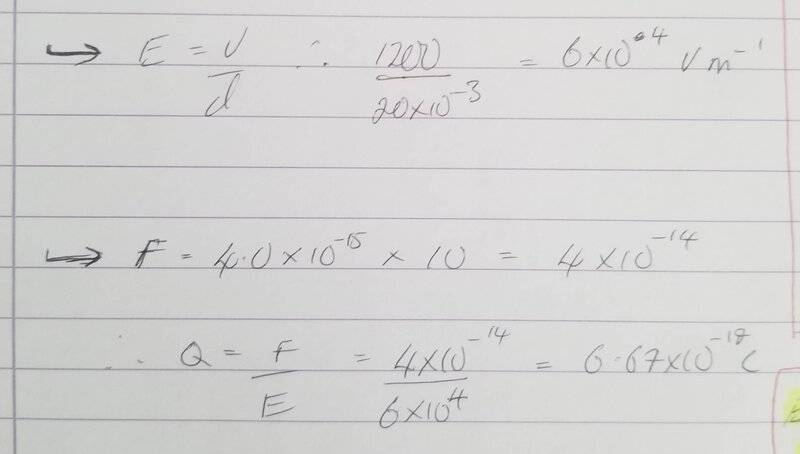 → E = V/d ∴ 1200/20×10⁻³ = 6×10⁴ V m⁻¹
→ F = 4.0×10⁻¹⁵ × 10 = 4×10⁻¹⁴
∴ Q = F/E = 4×10⁻¹⁴/6×10⁴ = 6.67×10⁻¹⁹ C